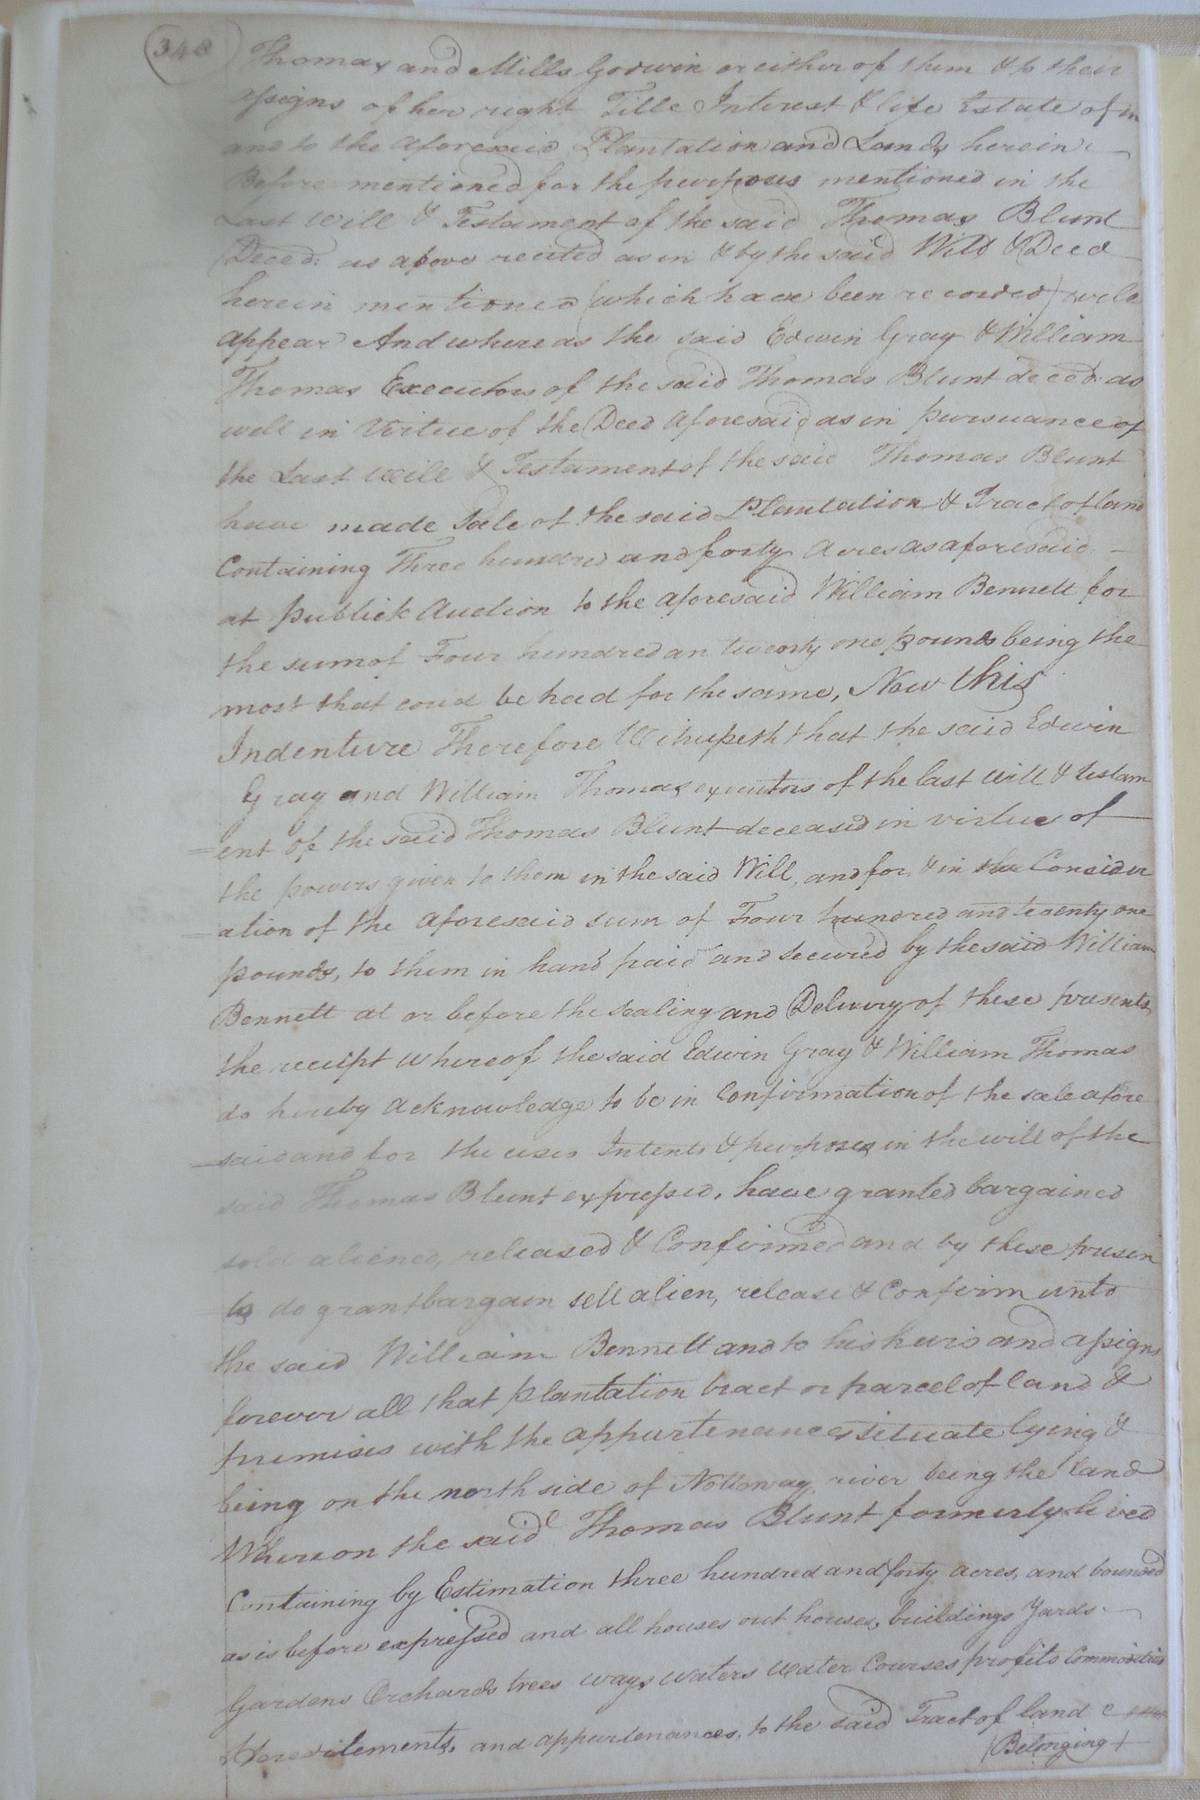 348
Thomas and Mills Godwin or either of them & to their
assigns of her right Title Interest & life Estate of in
and to the aforesaid Plantation and Lands herein
Before mentioned for the purposes mentioned in the
Last Will & Testament of the said Thomas Blunt
Deced: as above recited as in & by the said Will & Deed
herein mentioned (which have been recorded) will
appear And whereas the said Edwin Gray & William
Thomas Executors of the said Thomas Blunt deced: as
well in Virtue of the Deed aforesaid as in pursuance of
the Last Will & Testament of the said Thomas Blunt
have made Sale of the said Plantation & Tract of land
Containing Three hundred and forty Acres as aforesaid
at publick Auction to the aforesaid William Bennett for
the sum of Four hundred an twenty one pounds being the
most that coud be had for the same, Now this
Indenture Therefore Witnesseth that the said Edwin
Gray and William Thomas executors of the last Will & testam
ent of the said Thomas Blunt deceased in virtue of
the powers given to them in the said Will, and for & in the Consider
ation of the aforesaid sum of Four hundred and twenty one
pounds, to them in hand paid and secured by the said William
Bennett at or before the sealing and Delivery of these presents,
the receipt whereof the said Edwin Gray & William Thomas
do hereby acknowledge to be in Confirmation of the sale afore
said and for the uses Intents & purposes in the will of the
said Thomas Blunt expressed, have granted bargained
sold aliened, released & Confirmed and by these presen
ts do grant bargain sell alien, release & Confirm unto
the said William Bennett and to his heirs and assigns
forever all that plantation tract or parcel of land &
premises with the appurtenances situate lying &
being on the north side of Nottoway river being the land
Whereon the said Thomas Blunt formerly lived
Containing by Estimation three hundred and forty acres, and bounded
as is before expressed and all houses out houses, buildings Yards
Gardens Orchards trees ways waters water Courses profits Commodities
Hereditements, and appurtenances, to the said Tract of land
(Belonging)